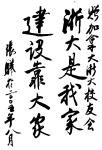 赠加拿大浙大校友会
浙大是我家
建设靠大家
张浚生
二〇〇五年八月